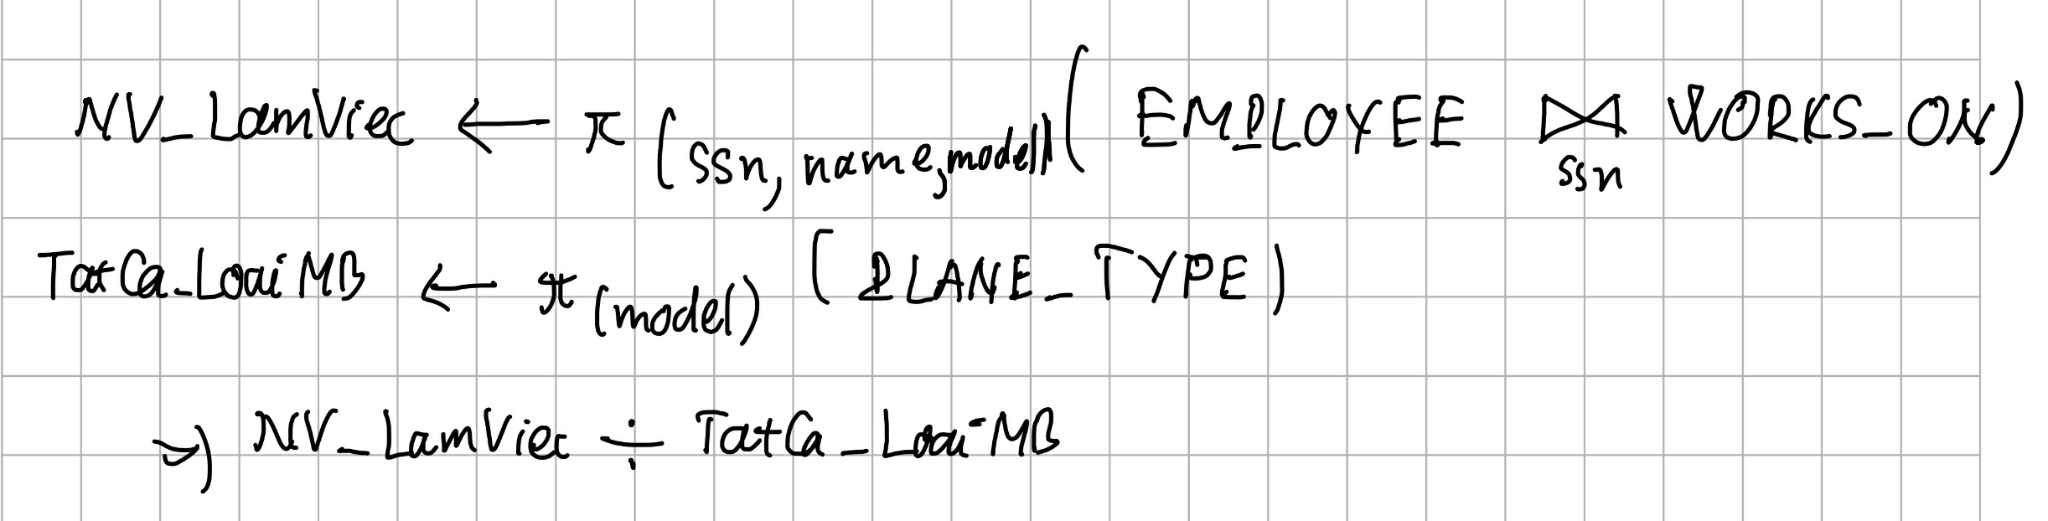 NV_LamViec ← π (ssn, name, model) ( EMPLOYEE ⋈ ssn WORKS_ON)
TatCa_LoaiMB ← π (model) ( PLANE_TYPE )
=> NV_LamViec ÷ TatCa_LoaiMB